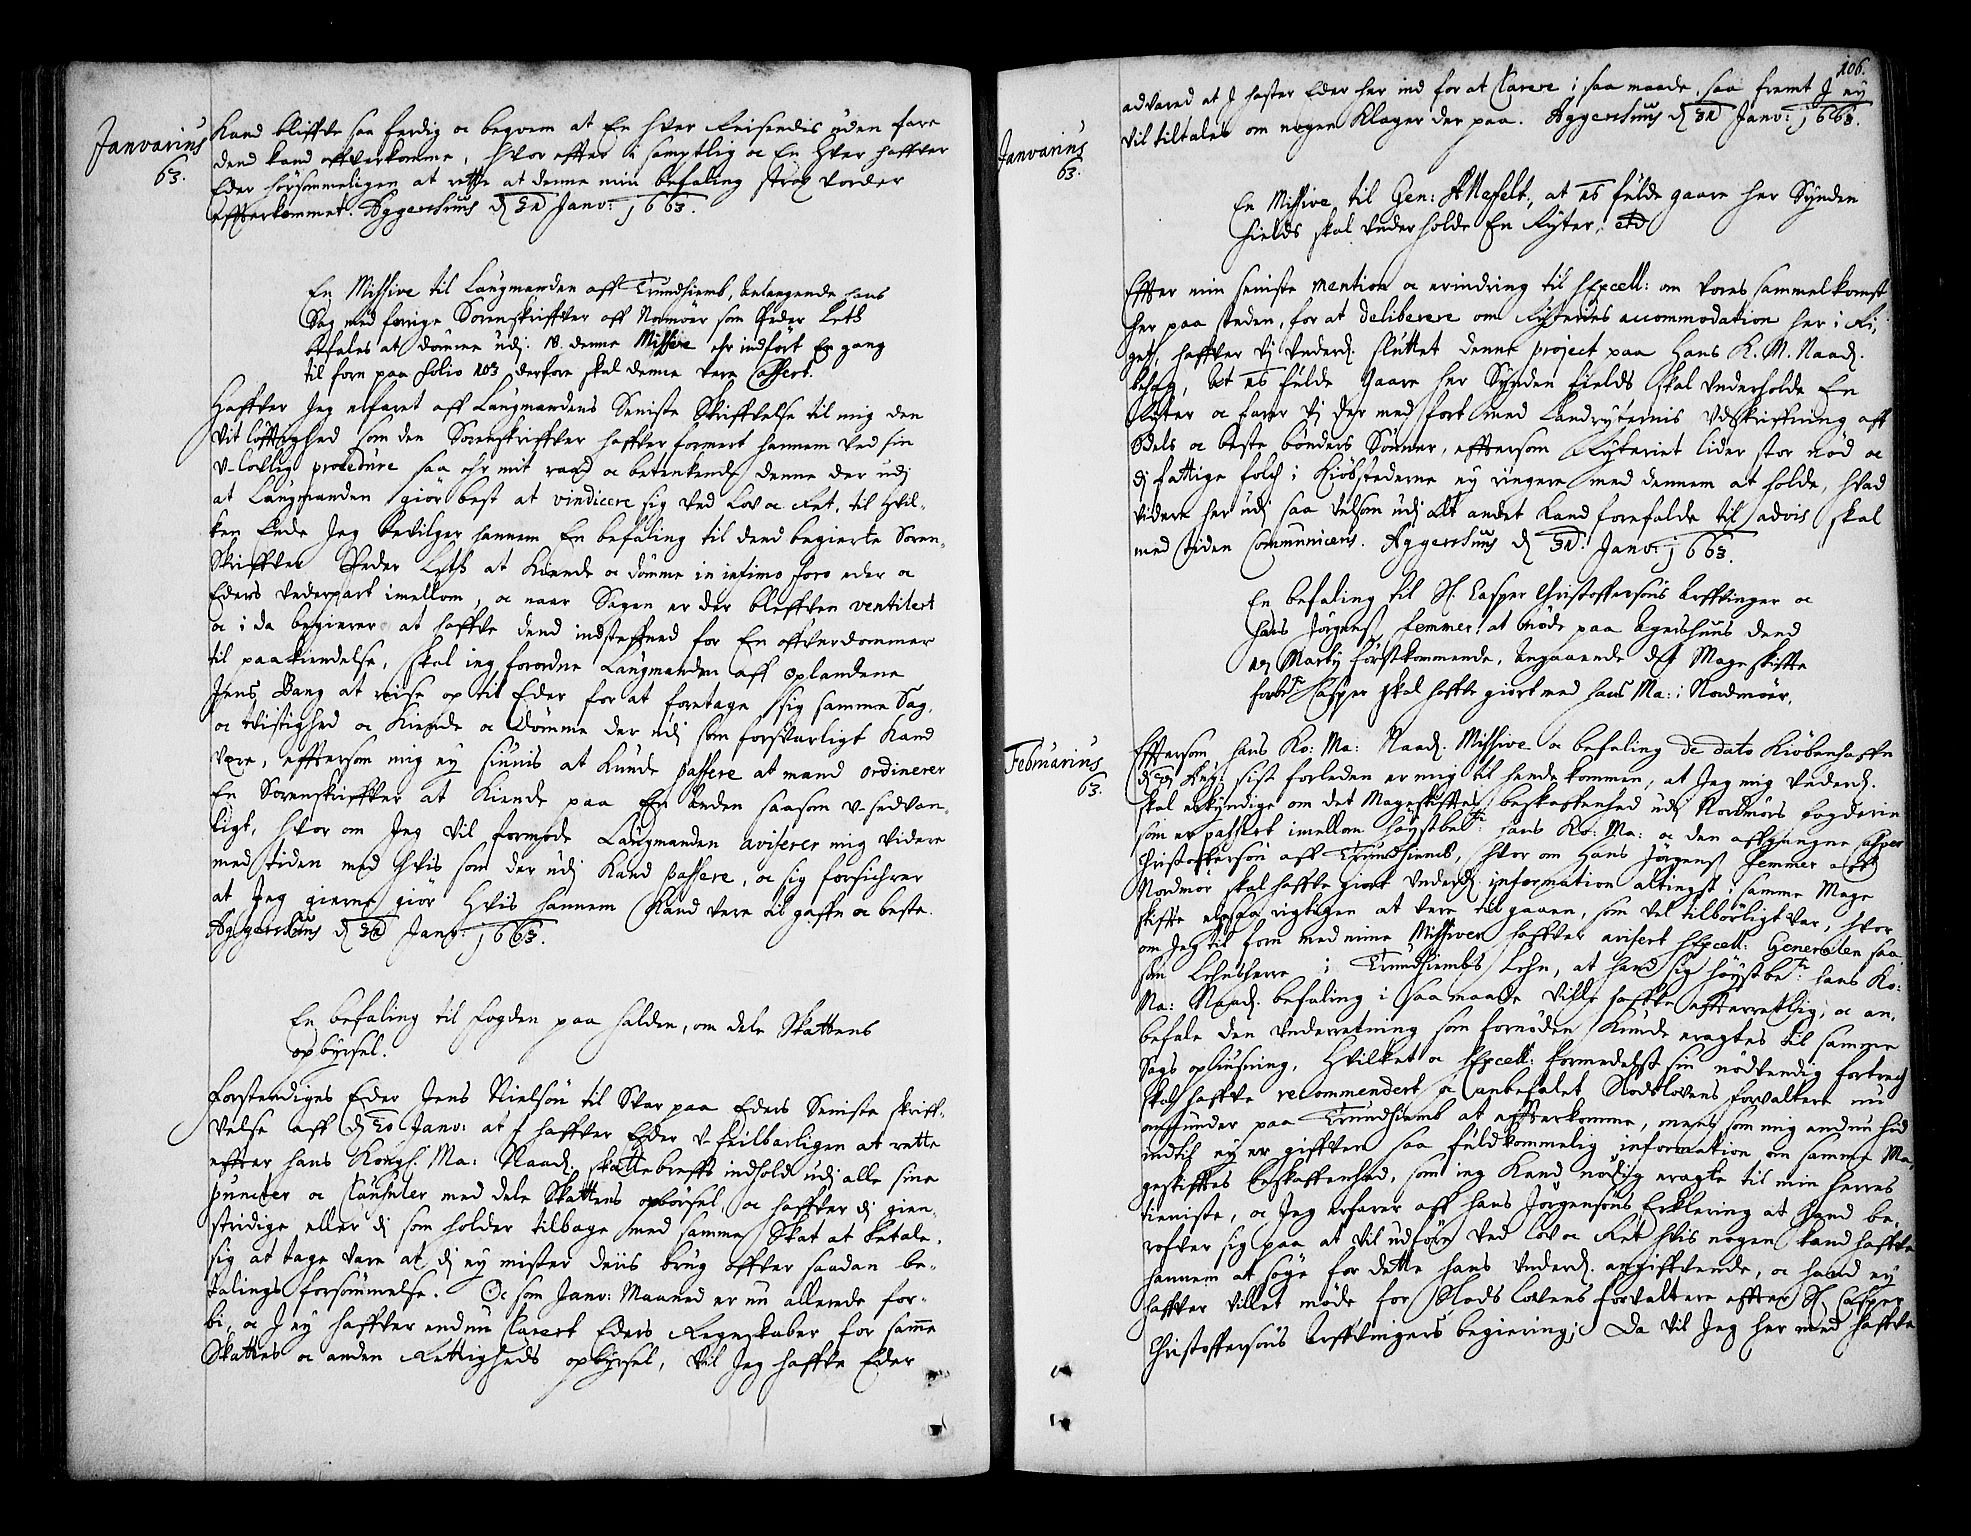 Janvarius
63.
Kand bliffve saa ferdig oc beqvem at En hver Reisendis uden fare
dend kand offverkomme, Hvor effter i samptlig oc En hver haffver
Eder hörsommeligen at rette at denne min befaling strax vorder
effterkommet. Aggershuus d 31 Janv: 1663.
En Missive til Laugmanden aff Trundhiemb, belangende hans
Sag med forige Sorenskriffver aff Normöer som Peder Leth
befales at dömme udj. NB. denne Missive ehr indfört En gang
til forn paa folio 103 derfore skal denne vere Cassert.
Haffver Jeg erfaret aff Laugmandens Seniste Skriffvelse til mig den
vitlöfftighed som den Sorenskriffver haffver formert hannem ved sin
v-lovlig procedure saa ehr mit raad oc betenkende denne der udj
at Laugmanden giör best at vindicere sig ved Lov oc Ret, til hvil-
ken Ende Jeg bevilger hannem En befaling til dend begierte Soren-
Skriffver Peder Leth at Kiende oc dömme in infimo foro eder oc
Eders vederpart imellom, oc naar Sagen er der bleffven ventilert
oc i da begierer at haffve dend indsteffned for En offverdommer
til paakiendelse, skal jeg forordne Laugmanden aff Oplandene
Jens Bang at reise op til Eder for at foretage sig samme Sag,
oc tvistighed oc Kiende oc dömme der udj som forsvarligt Kand
vere, efftersom mig ey siunis at kunde passere at mand ordinerer
En Sorenskriffver at Kiende paa En anden saasom v-sedvan-
ligt, hvor om Jeg vil formode Laugmanden aviserer mig videre
med tiden med hvis som der udj Kand passere, oc sig forsichrer
at Jeg gierne giör hvis hannem Kand vere til gaffn oc beste.
Aggershuus d 31 Janv: 1663.
En befaling til fogden paa halden, om dele Skattens
opbyrsel.
Forstendiges Eder Jens Nielsön til Svar paa Eders Seniste skriff-
velse aff d 20 Janv: at I haffver Eder v-feilbarligen at rette
effter hans Kongl. Ma: Naad. skattebreffs indhold udj alle sine
puncter oc Clausuler med dele Skattens opbörsel, oc haffver dj gien-
stridige eller dj som holder tilbage med samme Skat at betale,
sig at tage vare at dj ey mister deris brug offver saadan be-
talings forsömmelse. Oc som Janv: Maaned er nu allerede for-
bi, oc I ey haffver endnu Clarert Eders Regnskaber for samme
Skattes oc anden Rettigheds opbyrsel, vil Jeg haffve Eder
106.
advared at I haster Eder her ind for at Clarere i saa maade, saa fremt I ey
vil tiltales om nogen Klager der paa. Aggershuus d 31 Janv: 1663.
Janvarius
63.
En Missive til Gen: A Nefelt, at 15 fulde gaare her Synden
fields skal underholde En Ryter. etc
Effter min seniste mention oc erindring til hExcell: om vores sammelkomst
her paa steden, for at deliberere om Ryteriets accommodation her i Ri,
get, haffver vj underd. sluttet denne project paa Hans K. M. Naad.
behag, At 15 fulde Gaare her Synden fields skal underholde En
Ryter oc farer vj der med fort med Landryternis Udskriffning aff
Odels oc beste bönders Sönner, efftersom Ryteriet lider stor nöd oc
dj fattige folch i Kiöbstederne ey ringere med dennem at holde, hvad
videre her udj saa velsom udj alt andet Kand forefalde til advis skal
med tiden Communiceris. Aggershuus d 31 Janv: 1663.
En befaling til S. Casper Christoffersöns Arffvinger oc
hans Jörgens. Femmer, at möde paa Agershuus dend
Marty förstkommende, Angaaende dt Mageskiffte
forbte Casper skal haffve giort med hans Ma: i Nordmöer.
Februarius
63.
Efftersom hans Ko: Ma: Naad. Missive oc befaling de dato Kiöbenhaffn
sist forleden er mig til hende kommen, at Jeg mig underd.
skal erkyndige om det Mageskifftes beskaffenhed udj Nordmörs fogderie
som er passert imellom höystbete hans Ko: Ma: oc den affgangne Casper
Christoffersön aff Trundhiemb, hvor om Hans Jörgens. Femmer
Nordmör skal haffve giort underd. information altingest i samme Mage
skiffte rigtigen at vere tilgaaen, som vel tilbörligt var, hvor
om Jeg til forn med mine Missiver haffver avisert hExcell: Generalen saa
som Lehnsherre i Trundhiembs Lehn, at hand sig höystbete hans Ko:
Ma: Naad. befaling i saa maade ville haffve effterrettlig, oc an,
befale den underretning som fornöden kunde eragtes til samme
Sags opliusning, hvilket oc hExcell: formedelst sin nödvendig fortred
skal haffve recommendert oc anbefalet Slodtslovens forvaltere nu
omstunder paa Trundhiemb at effterkomme, mens som mig endnu hid
indtil ey er giffven saa fuldkommelig information om samme Ma,
geskifftes beskaffenhed, som jeg Kand nödig eragte til min herres
tieniste, oc Jeg erfarer aff hans Jörgensöns Erklering at hand be,
roffver sig paa at vil udföre ved Lov oc Ret hvis nogen kand haffve
hannem at söge for dette hans underd. angiffvende, oc hand ey
haffver villet möde for Slods Lovens forvaltere effter S. Casper
Christoffersöns Arffvingers begiering; Da vil Jeg her med haffve